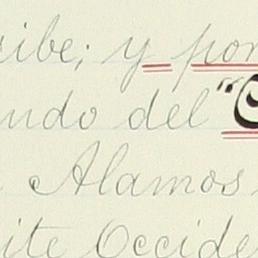 ribe; y por
ndo del "
Alamos
ite Occide